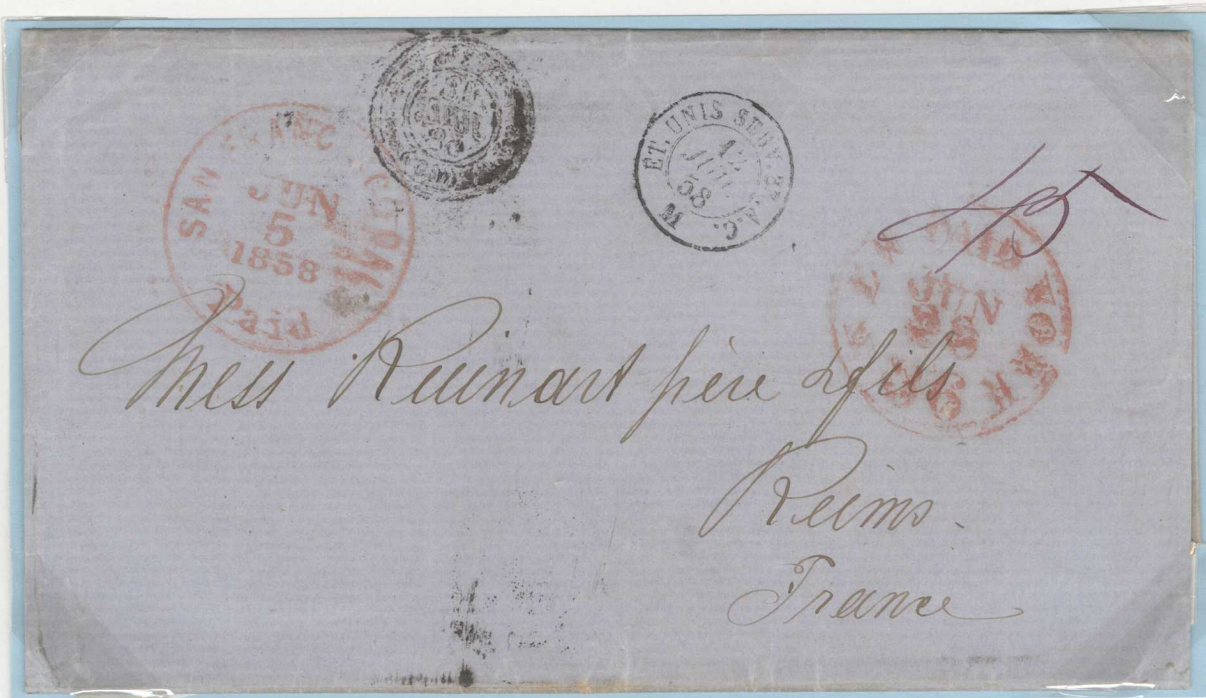 SAN FRANCISCO CAL
JUN
5
1858
Paid
ET. UNIS SERV. BR. A.C.
12
JUIL
58
M
NEW PAID YORK
JUN
28
45
Mess Ruinart père & fils
Reims.
France